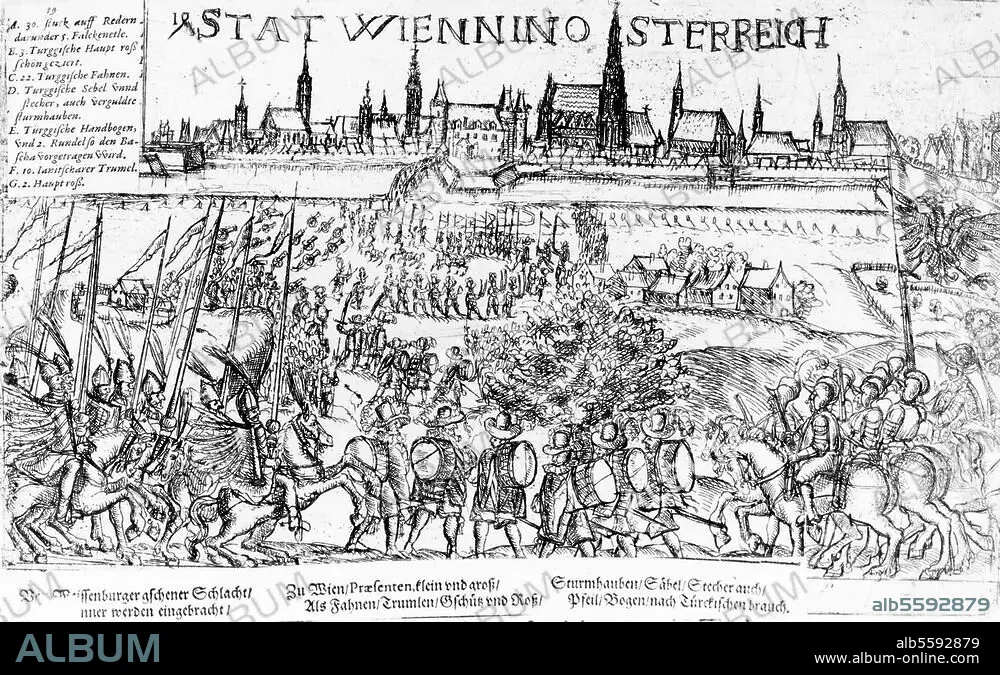 19
STAT WIENN IN O STERREICH
A. 30. stuck auff Redern
darunder 5. Falckenetle.
B. 3. Turggische Haupt roß
schön geziert.
C. 22. Turggische Fahnen.
D. Turggische Sebel vnnd
stecher, auch verguldte
sturmhauben.
E. Turggische Handbogen,
vnd 2. Rundel so den Ba-
scha vorgetragen wurd.
F. 10. Ianitscharer Trumel.
G. 2. Haupt roß.
Weissenburger gschener Schlacht/
inner werden eingebracht/
Zu Wien/Præsenten, klein vnd groß/
Als Fahnen/Trumlen/Gschütz vnd Roß/
Sturmhauben/Säbel/Stecher auch/
Pfeil/Bogen/nach Türckischen brauch.
ALBUM
alb5592879
ALBUM
alb5592879
www.album-online.com